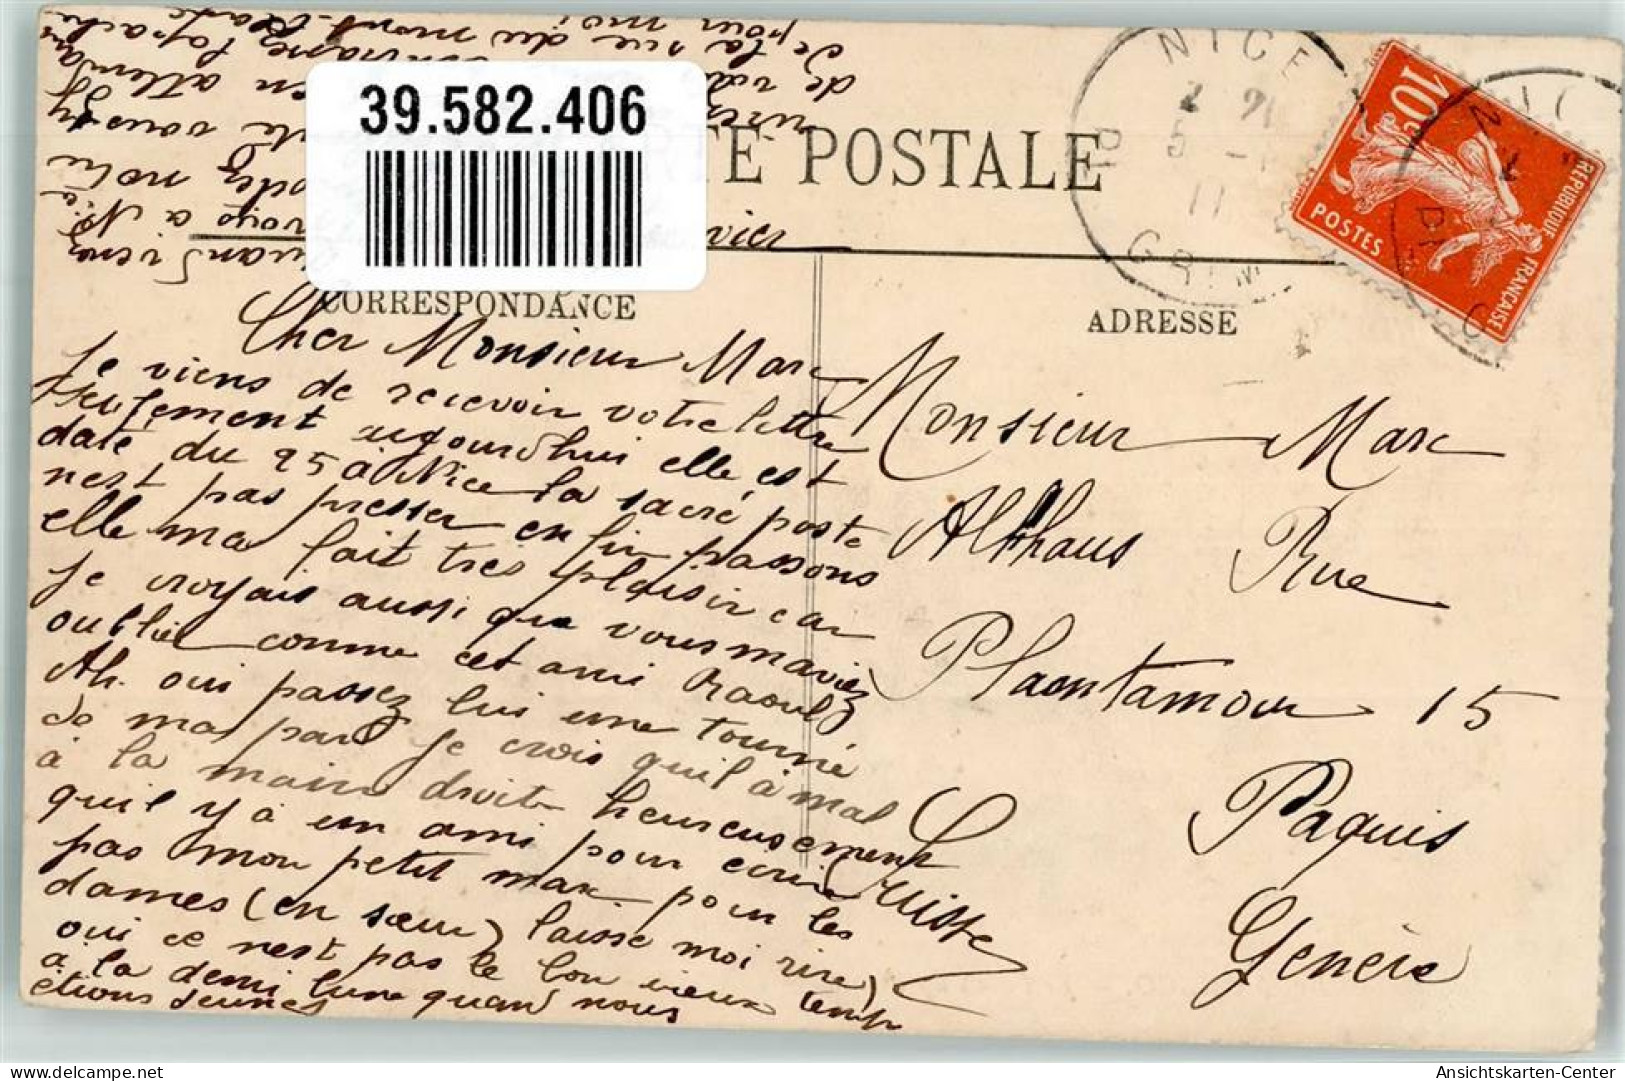 39.582.406
CARTE POSTALE
vier
NICE
5 - 1
11
NIC
10c
POSTES
REPUBLIQUE FRANÇAISE
CORRESPONDANCE
ADRESSE
Cher Monsieur Marc
Je viens de recevoir votre lettre
seulement aujourdhui elle est
daté du 25 à Nice la sacré poste
nest pas presser en fin passons
elle ma fait très plaisir car
Je croyais aussi que vous maviez
oublier comme cet ami Raoul
Ah. oui passez lui une tourné
de ma part Je crois quil à mal
à la main droite heureusement
quil y à un ami pour ecrire
pas mon petit marc pour les
dames (en sœur) laisse moi rire)
oui ce nest pas le bon vieux temp
à la demi lune quand nous
étions Jeunes
Monsieur Marc
Althaus Rue
Plantamour 15
Paquis
Genève
Suisse
quand viens
voir a Nice
notre
vous
en attendan
de la rue du mont-
pour moi
Ansichtskarten-Center